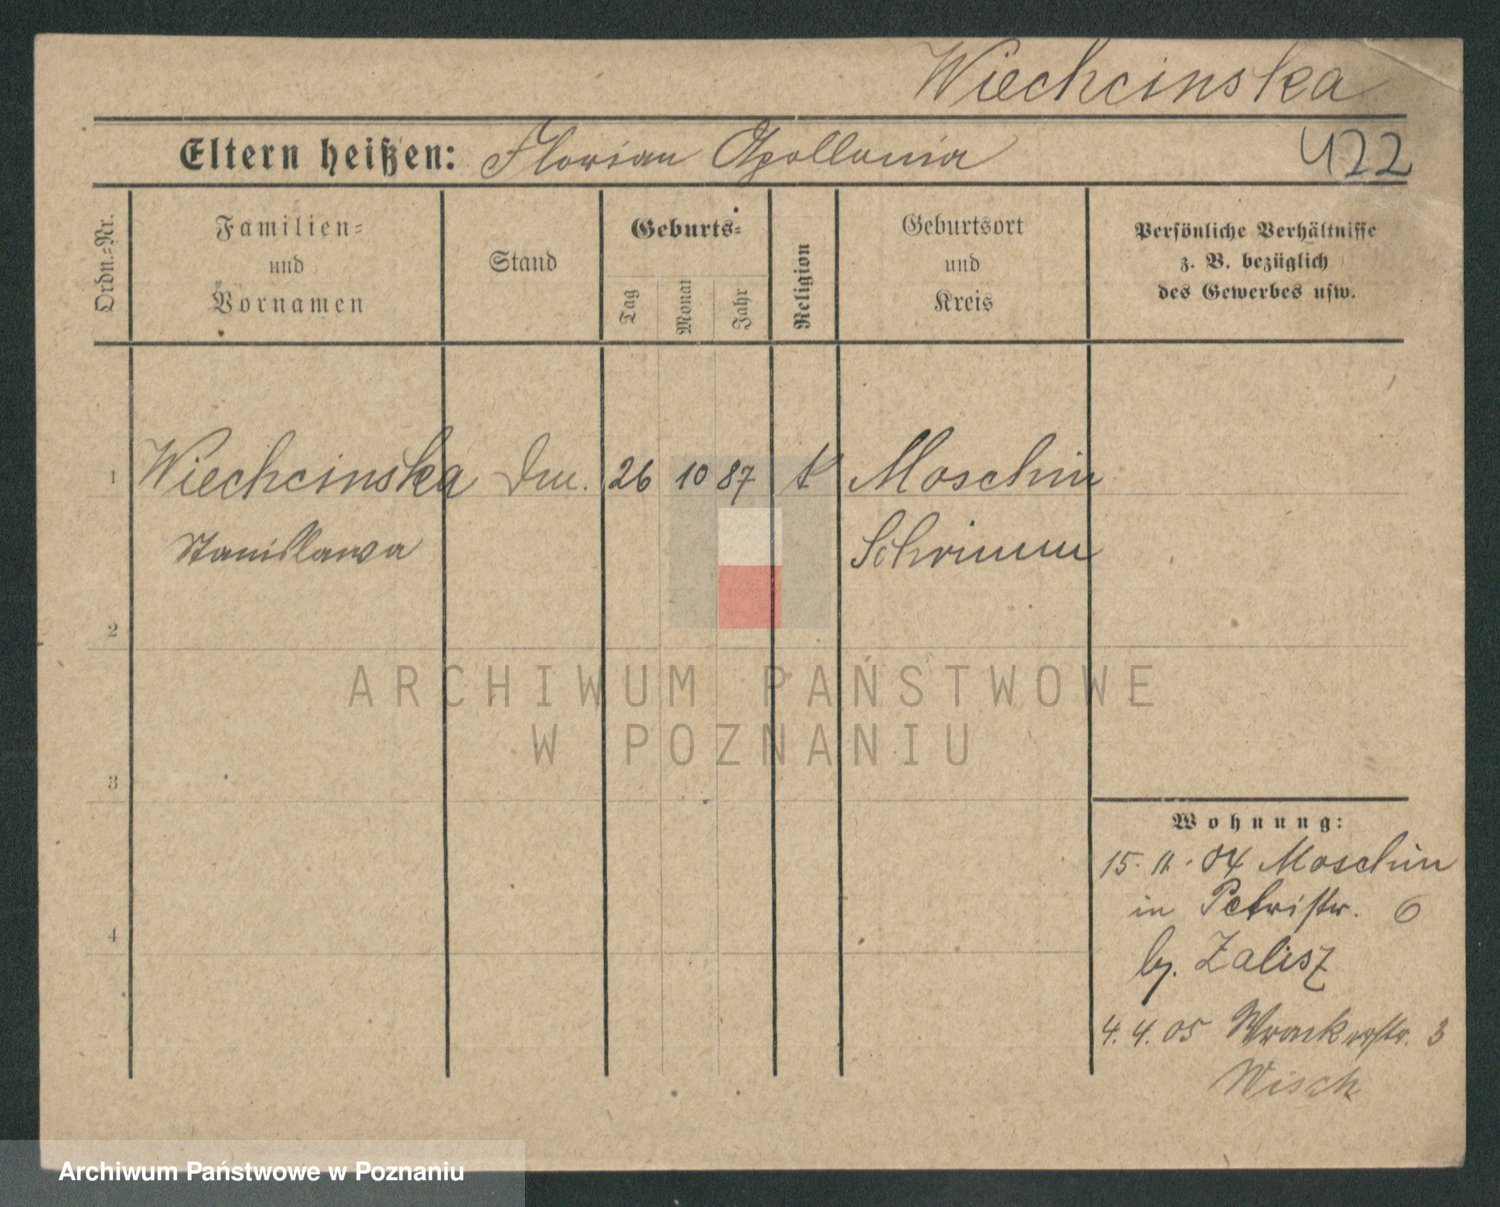 Wiechcinska
Eltern heißen: Florian Apollonia 422
Ordn.-Nr.
Familien-
und
Vornamen
Stand
Geburts-
Tag
Monat
Jahr
Religion
Geburtsort
und
Kreis
Persönliche Verhältnisse
z. B. bezüglich
des Gewerbes usw.
1 Wiechcinska 26 10 87 k Moschin
Stanislawa Schrimm
2
ARCHIWUM PAŃSTWOWE
W POZNANIU
3
Wohnung:
15. 11. 04 Moschin
in Petristr. 6
4
by. Zalisz
4. 4. 05 Wronkerstr. 3
Wisch
Archiwum Państwowe w Poznaniu